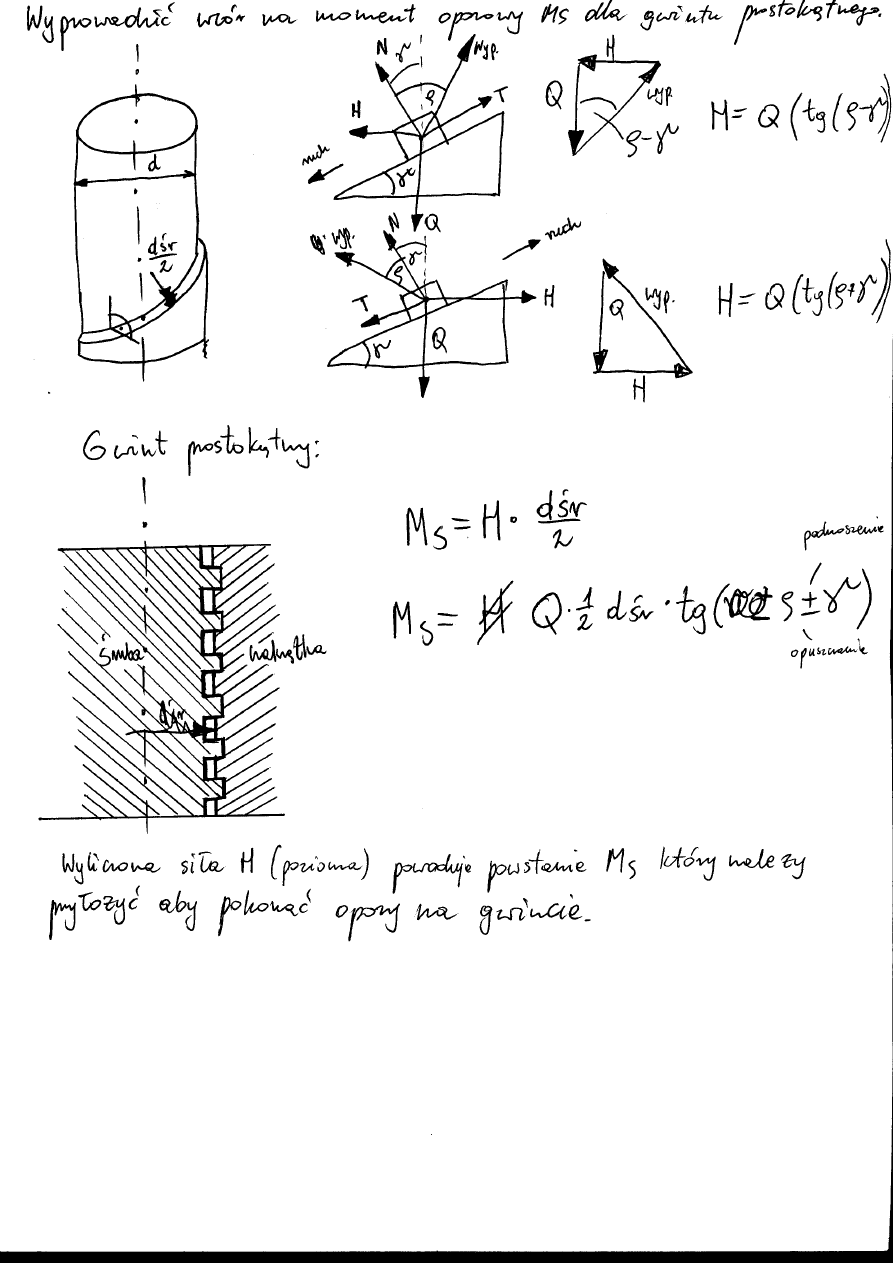 Wyprowadzić wzór na moment oporowy Ms dla gwintu prostokątnego.
d
dśr
2
N γ ρ wyp.
H T
ruch
γ
Q
H
Q wyp
ρ-γ
H = Q (tg(ρ-γ))
wyp. N γ ρ
ruch
T H
γ Q
Q wyp.
H
H = Q (tg(ρ+γ))
Gwint prostokątny:
Ms = H · dśr
2
podnoszenie
Ms = Q · 1/2 dśr · tg( ρ ± γ)
opuszczanie
śruba nakrętka
dśr
Wyliczona siła H (pozioma) powoduje powstanie Ms który należy
przyłożyć aby pokonać opory na gwincie.